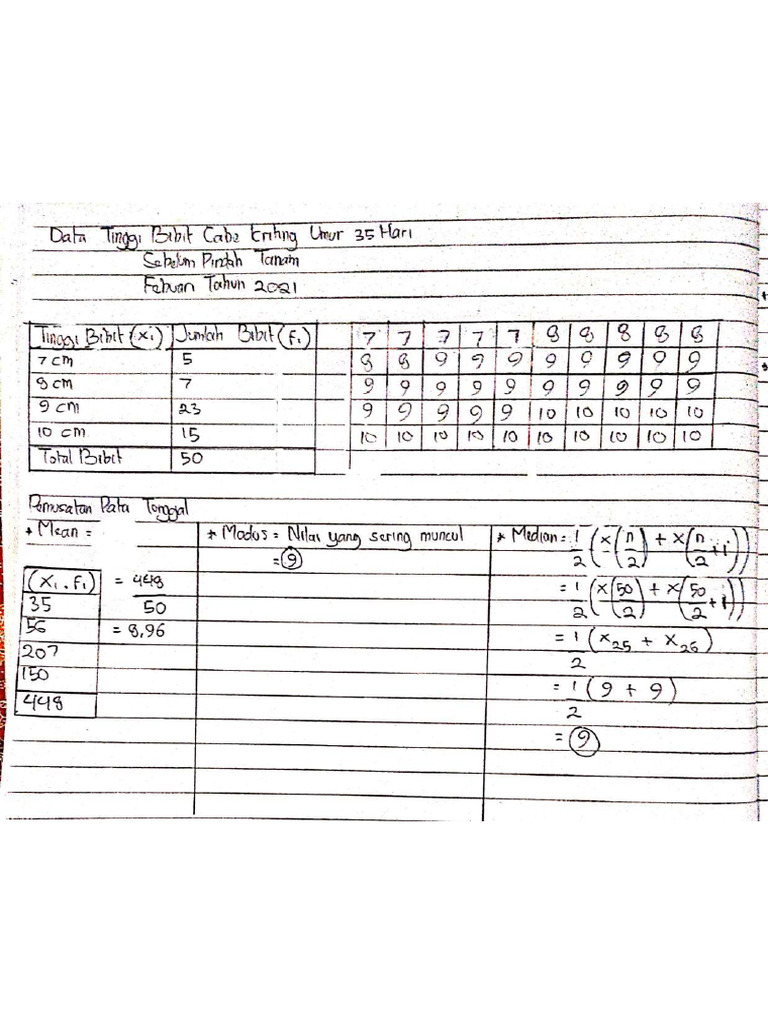 Data Tinggi Bibit Cabe Kriting Umur 35 Hari
Sebelum Pindah Tanam
Febuari Tahun 2021
Tinggi Bibit (xi) Jumlah Bibit (fi)
7 cm 5
8 cm 7
9 cm 23
10 cm 15
Total Bibit 50
7 7 7 7 7 8 8 8 8 8
8 8 9 9 9 9 9 9 9 9
9 9 9 9 9 9 9 9 9 9
9 9 9 9 9 10 10 10 10 10
10 10 10 10 10 10 10 10 10 10
Pemusatan Data Tunggal
* Mean =
(xi . fi) = 448/50
35
56 = 8,96
207
150
448
* Modus = Nilai yang sering muncul
= 9
* Median = 1/2 (x(n/2) + x(n/2 + 1))
= 1/2 (x(50/2) + x(50/2 + 1))
= 1/2 (x25 + x26)
= 1/2 (9 + 9)
= 9